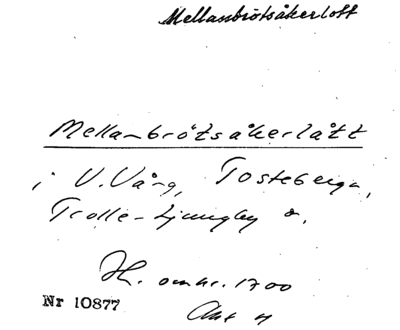 Mellanbrötsåkerloft
Mellanbrötsåkerlått
i V.Vång, Tosteberga,
Trolle-Ljungby a.
H. omkr. 1700
Nr 10877